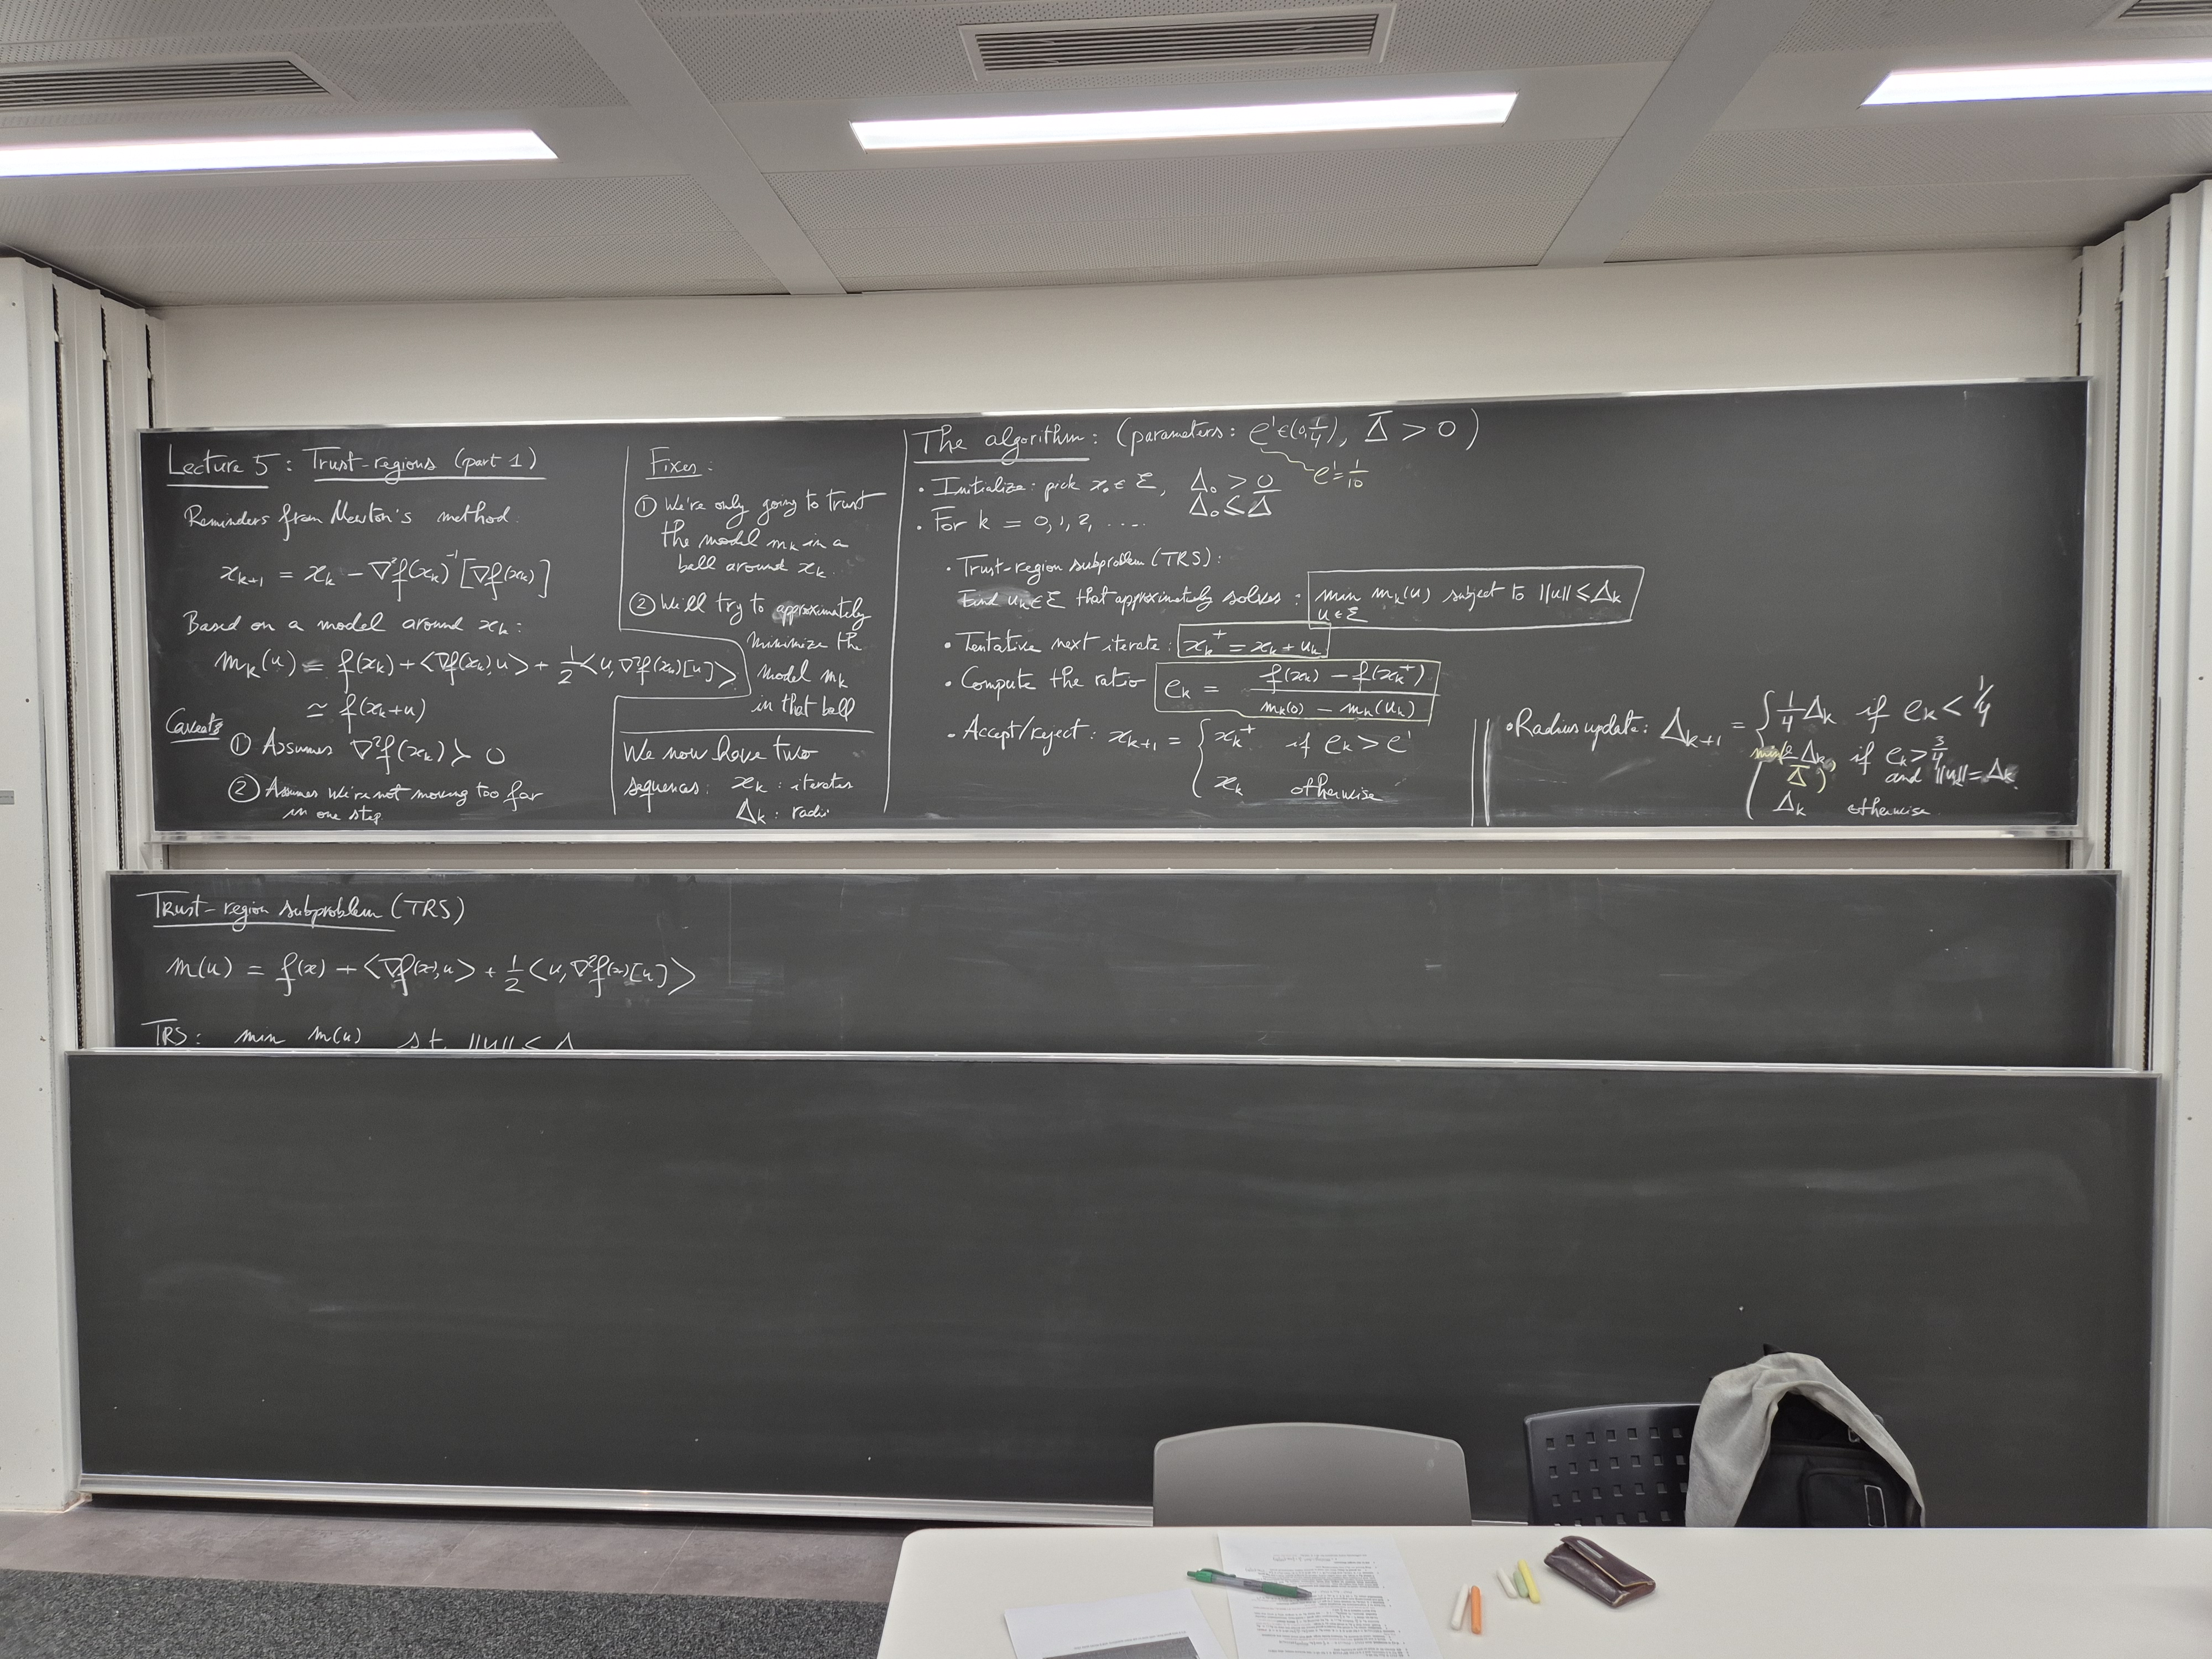 Lecture 5 : Trust-regions (part 1)
Reminders from Newton's method.
x_{k+1} = x_k − ∇²f(x_k)^{-1}[∇f(x_k)]
Based on a model around x_k :
m_k(u) = f(x_k) + <∇f(x_k), u> + 1/2 <u, ∇²f(x_k)[u]>
≃ f(x_k+u)
Caveats
① Assumes ∇²f(x_k) ≻ 0
② Assumes we're not moving too far
in one step
Fixes :
① We're only going to trust
the model m_k in a
ball around x_k.
② We'll try to approximately
minimize the
model m_k
in that ball
We now have two
sequences: x_k : iterates
Δ_k : radii
The algorithm : (parameters : ρ' ∈ (0, 1/4), Δ̄ > 0)
ρ' = 1/10
• Initialize : pick x_0 ∈ ℰ, Δ_0 > 0
Δ_0 ≤ Δ̄
• For k = 0, 1, 2, ....
• Trust-region subproblem (TRS) :
Find u_k ∈ ℰ that approximately solves : min m_k(u) subject to ||u|| ≤ Δ_k
u ∈ ℰ
• Tentative next iterate : x_k^+ = x_k + u_k
• Compute the ratio ρ_k = (f(x_k) − f(x_k^+)) / (m_k(0) − m_k(u_k))
• Accept/reject : x_{k+1} = { x_k^+ if ρ_k > ρ'
x_k otherwise
• Radius update: Δ_{k+1} = { 1/4 Δ_k if ρ_k < 1/4
min(2Δ_k, Δ̄) if ρ_k > 3/4 and ||u_k|| = Δ_k
Δ_k otherwise.
Trust-region subproblem (TRS)
m(u) = f(x) + <∇f(x), u> + 1/2 <u, ∇²f(x)[u]>
TRS : min m(u) s.t. ||u|| ≤ Δ